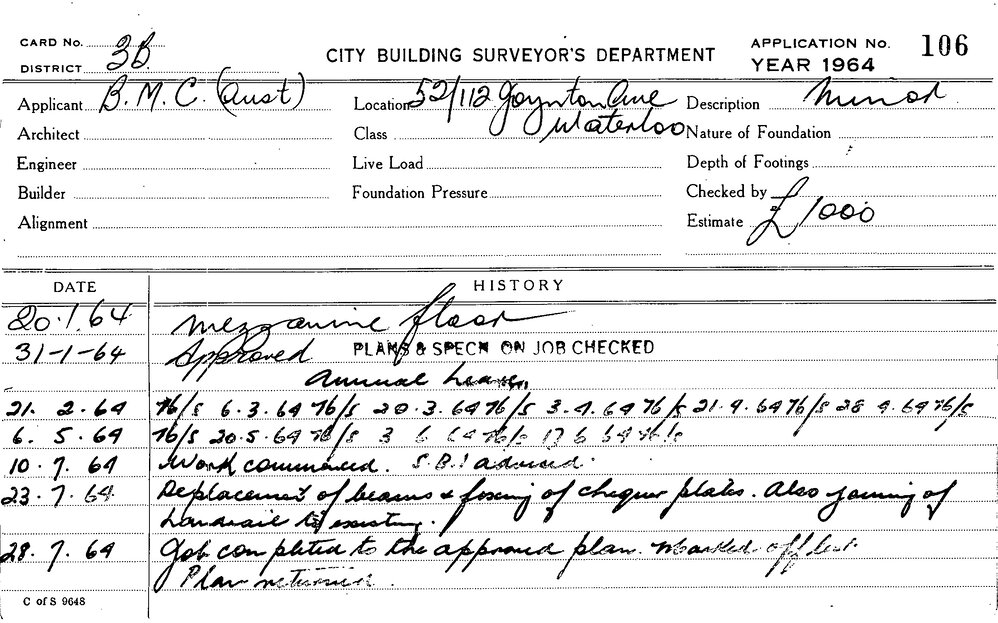 CARD No. 3B CITY BUILDING SURVEYOR'S DEPARTMENT APPLICATION No. 106
DISTRICT YEAR 1964
Applicant B.M.C. (Aust) Location 52/112 Joynton Ave Description Minor
Waterloo
Architect Class Nature of Foundation
Engineer Live Load Depth of Footings
Builder Foundation Pressure Checked by
Alignment Estimate £1000
DATE HISTORY
20.1.64 Mezzanine floor
31-1-64 Approved PLANS & SPECN ON JOB CHECKED
Annual Leave
21. 2. 64 N/S 6.3.64 N/S 20.3.64 N/S 3.4.64 N/S 21.4.64 N/S 28 4.64 N/S
6. 5. 64 N/S 20.5.64 N/S 3 6 64 N/S 17 6 64 N/S
10. 7. 64 Work commenced. S.B.I advised.
23. 7. 64 Replacement of beams & fixing of chequer plates. Also joining of
handrail to existing.
28. 7. 64 Job completed to the approved plan. Marked off list.
Plan returned.
C of S 9648